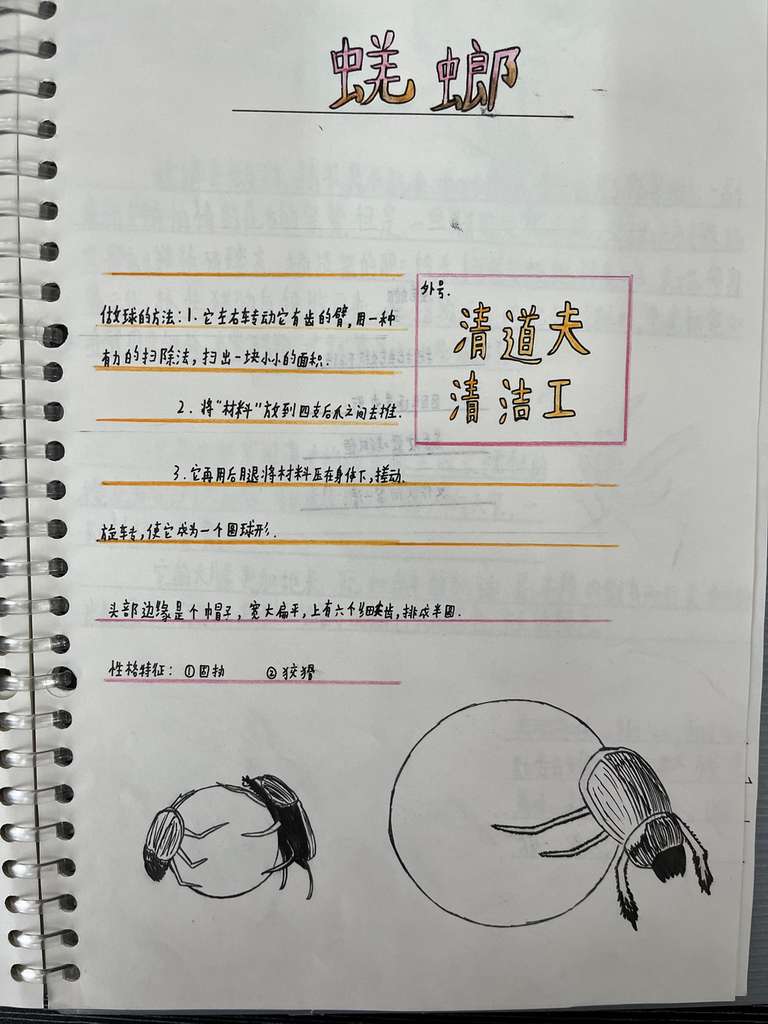 蜣螂
外号.
清道夫
清洁工
做球的方法:1.它左右转动它有齿的臂,用一种
有力的扫除法,扫出一块小小的面积.
2.将“材料”放到四支后爪之间去推.
3.它再用后腿将材料压在身体下,搓动.
旋转,使它成为一个圆球形.
头部边缘是个帽子,宽大扁平,上有六个细齿,排成半圆.
性格特征:①固执 ②狡猾